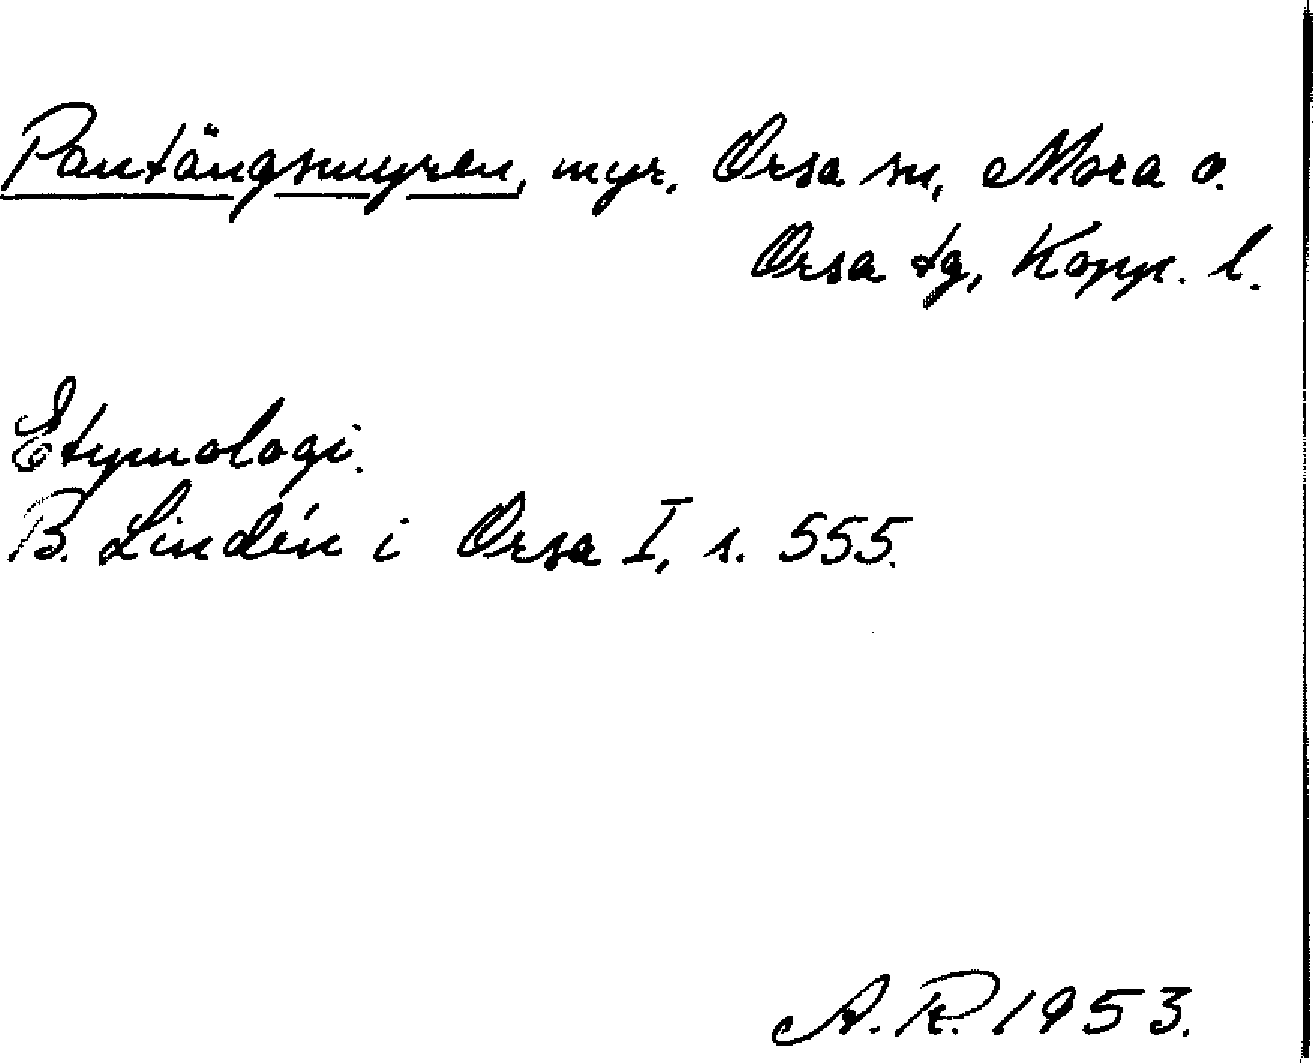 Pantängsmyren, myr, Orsa sn, Mora o.
Orsa tg, Kopp. l.
Etymologi.
B. Lindén i Orsa I, s. 555.
A. R. 1953.